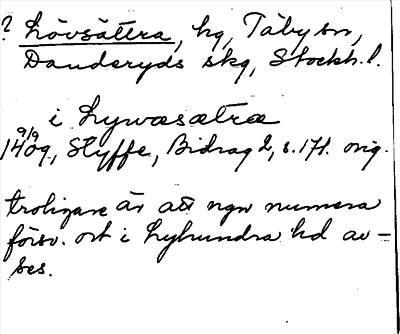 ? Lövsättra, hg, Täby sn,
Danderyds skg, Stockh. l.
i Lywasætræ
9/9
1409, Styffe, Bidrag 2, s. 171. orig.
troligare är att ngn numera
försv. ort i Lyhundra hd av-
ses.